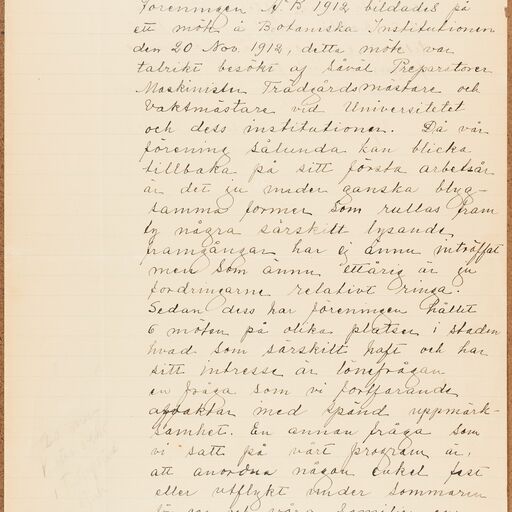 Föreningen A. B. 1912 bildades på
ett möte å Botaniska Institutionen
den 20 Nov. 1912, detta möte var
talrikt besökt af såväl Preparatorer
Maskinister Trädgårdsmästare och
Vaktmästare vid Universitetet
och dess institutioner. Då vår
förening sålunda kan blicka
tillbaka på sitt första arbetsår
är det ju under ganska blyg-
samma former som rullas fram
ty några särskilt lysande
framgångar har ej ännu inträffat
men som ännu ettårig är ju
fordringarne relativt ringa.
Sedan dess har föreningen hållet
6 möten på olika platser i staden
hvad som särskilt haft och har
sitt intresse är lönefrågan
en fråga som vi fortfarande
avvaktar med spänd uppmärk-
samhet. En annan fråga som
vi satt på vårt program är,
att anordna någon enkel fest
eller utflykt under sommaren